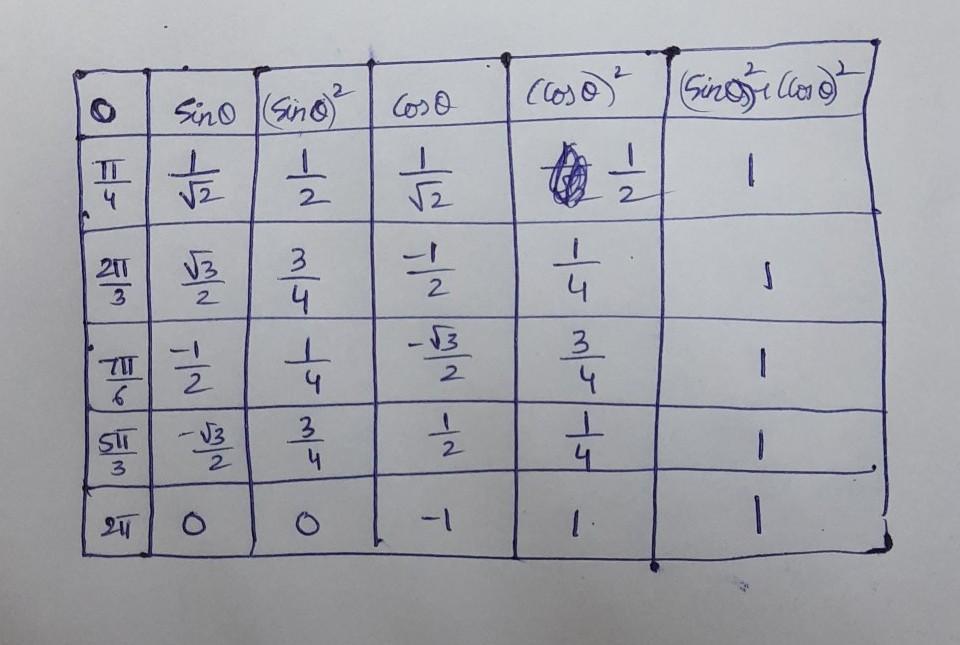 θ sinθ (sinθ)² cosθ (cosθ)² (sinθ)²+(cosθ)²
π/4 1/√2 1/2 1/√2 1/2 1
2π/3 √3/2 3/4 -1/2 1/4 1
7π/6 -1/2 1/4 -√3/2 3/4 1
5π/3 -√3/2 3/4 1/2 1/4 1
2π 0 0 -1 1 1